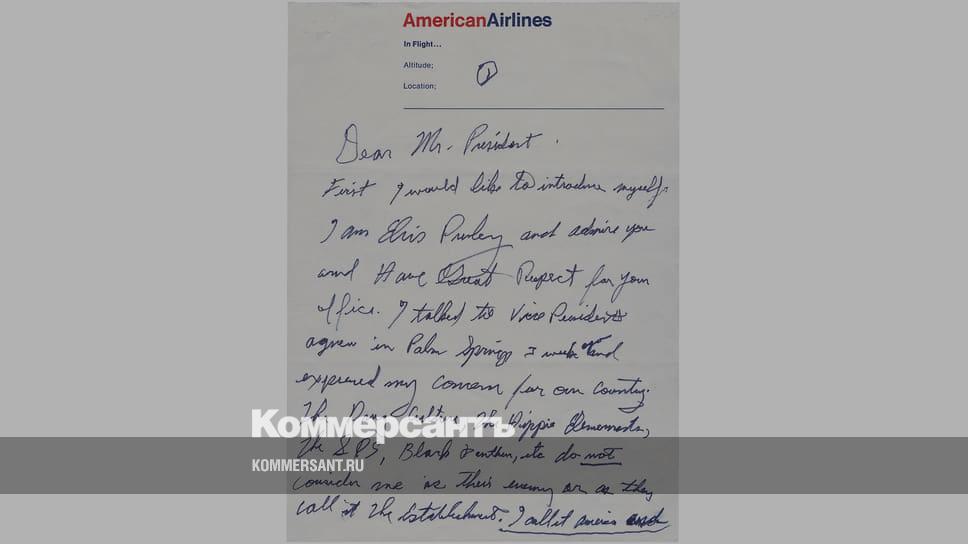 AmericanAirlines
In Flight...
Altitude;
Location;
Dear Mr. President.
First I would like to introduce myself.
I am Elvis Presley and admire you
and Have Great Respect for your
office. I talked to Vice President
Agnew in Palm Springs I week ago and
expressed my concern for our country.
The Drug Culture, The Hippie Elements,
The SDS, Black Panthers, etc do not
consider me as their enemy or as they
call it The Establishment. I call it america and
Коммерсантъ
KOMMERSANT.RU